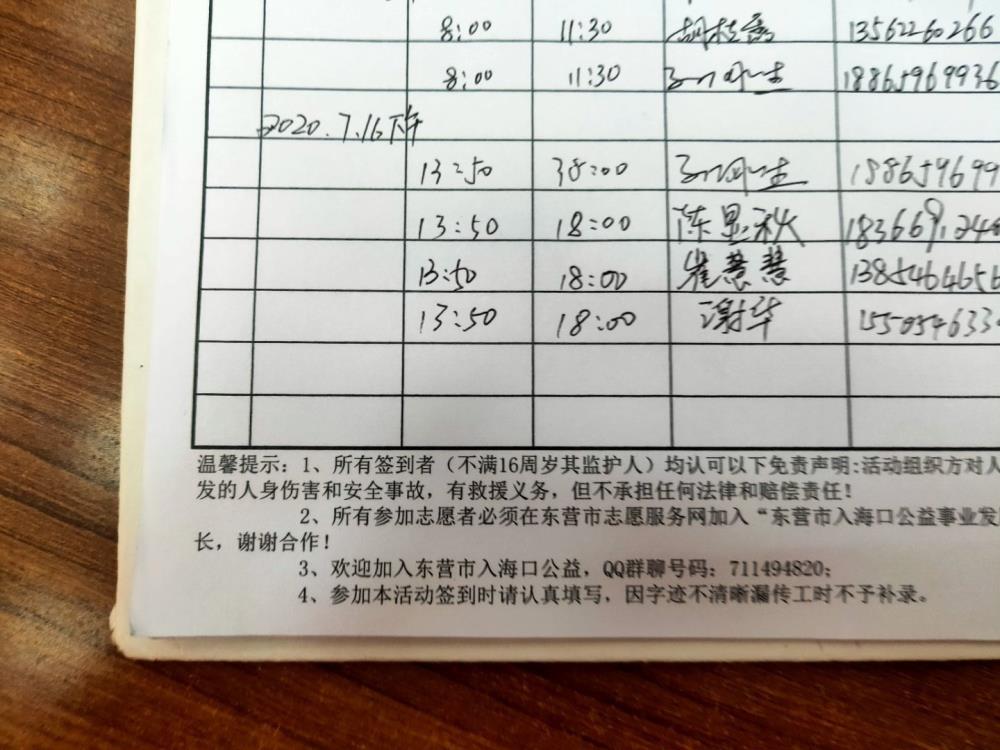 8:00 11:30 胡枝秀 13562260266
8:00 11:30 18865969936
2020.7.16下午
13:50 38:00 188659699
13:50 18:00 陈显秋 183669124
13:50 18:00 崔慧慧 1385464656
13:50 18:00 谢华 155054633
温馨提示：1、所有签到者（不满16周岁其监护人）均认可以下免责声明:活动组织方对人
发的人身伤害和安全事故，有救援义务，但不承担任何法律和赔偿责任！
2、所有参加志愿者必须在东营市志愿服务网加入“东营市入海口公益事业发
长，谢谢合作！
3、欢迎加入东营市入海口公益，QQ群聊号码：711494820；
4、参加本活动签到时请认真填写，因字迹不清晰漏传工时不予补录。